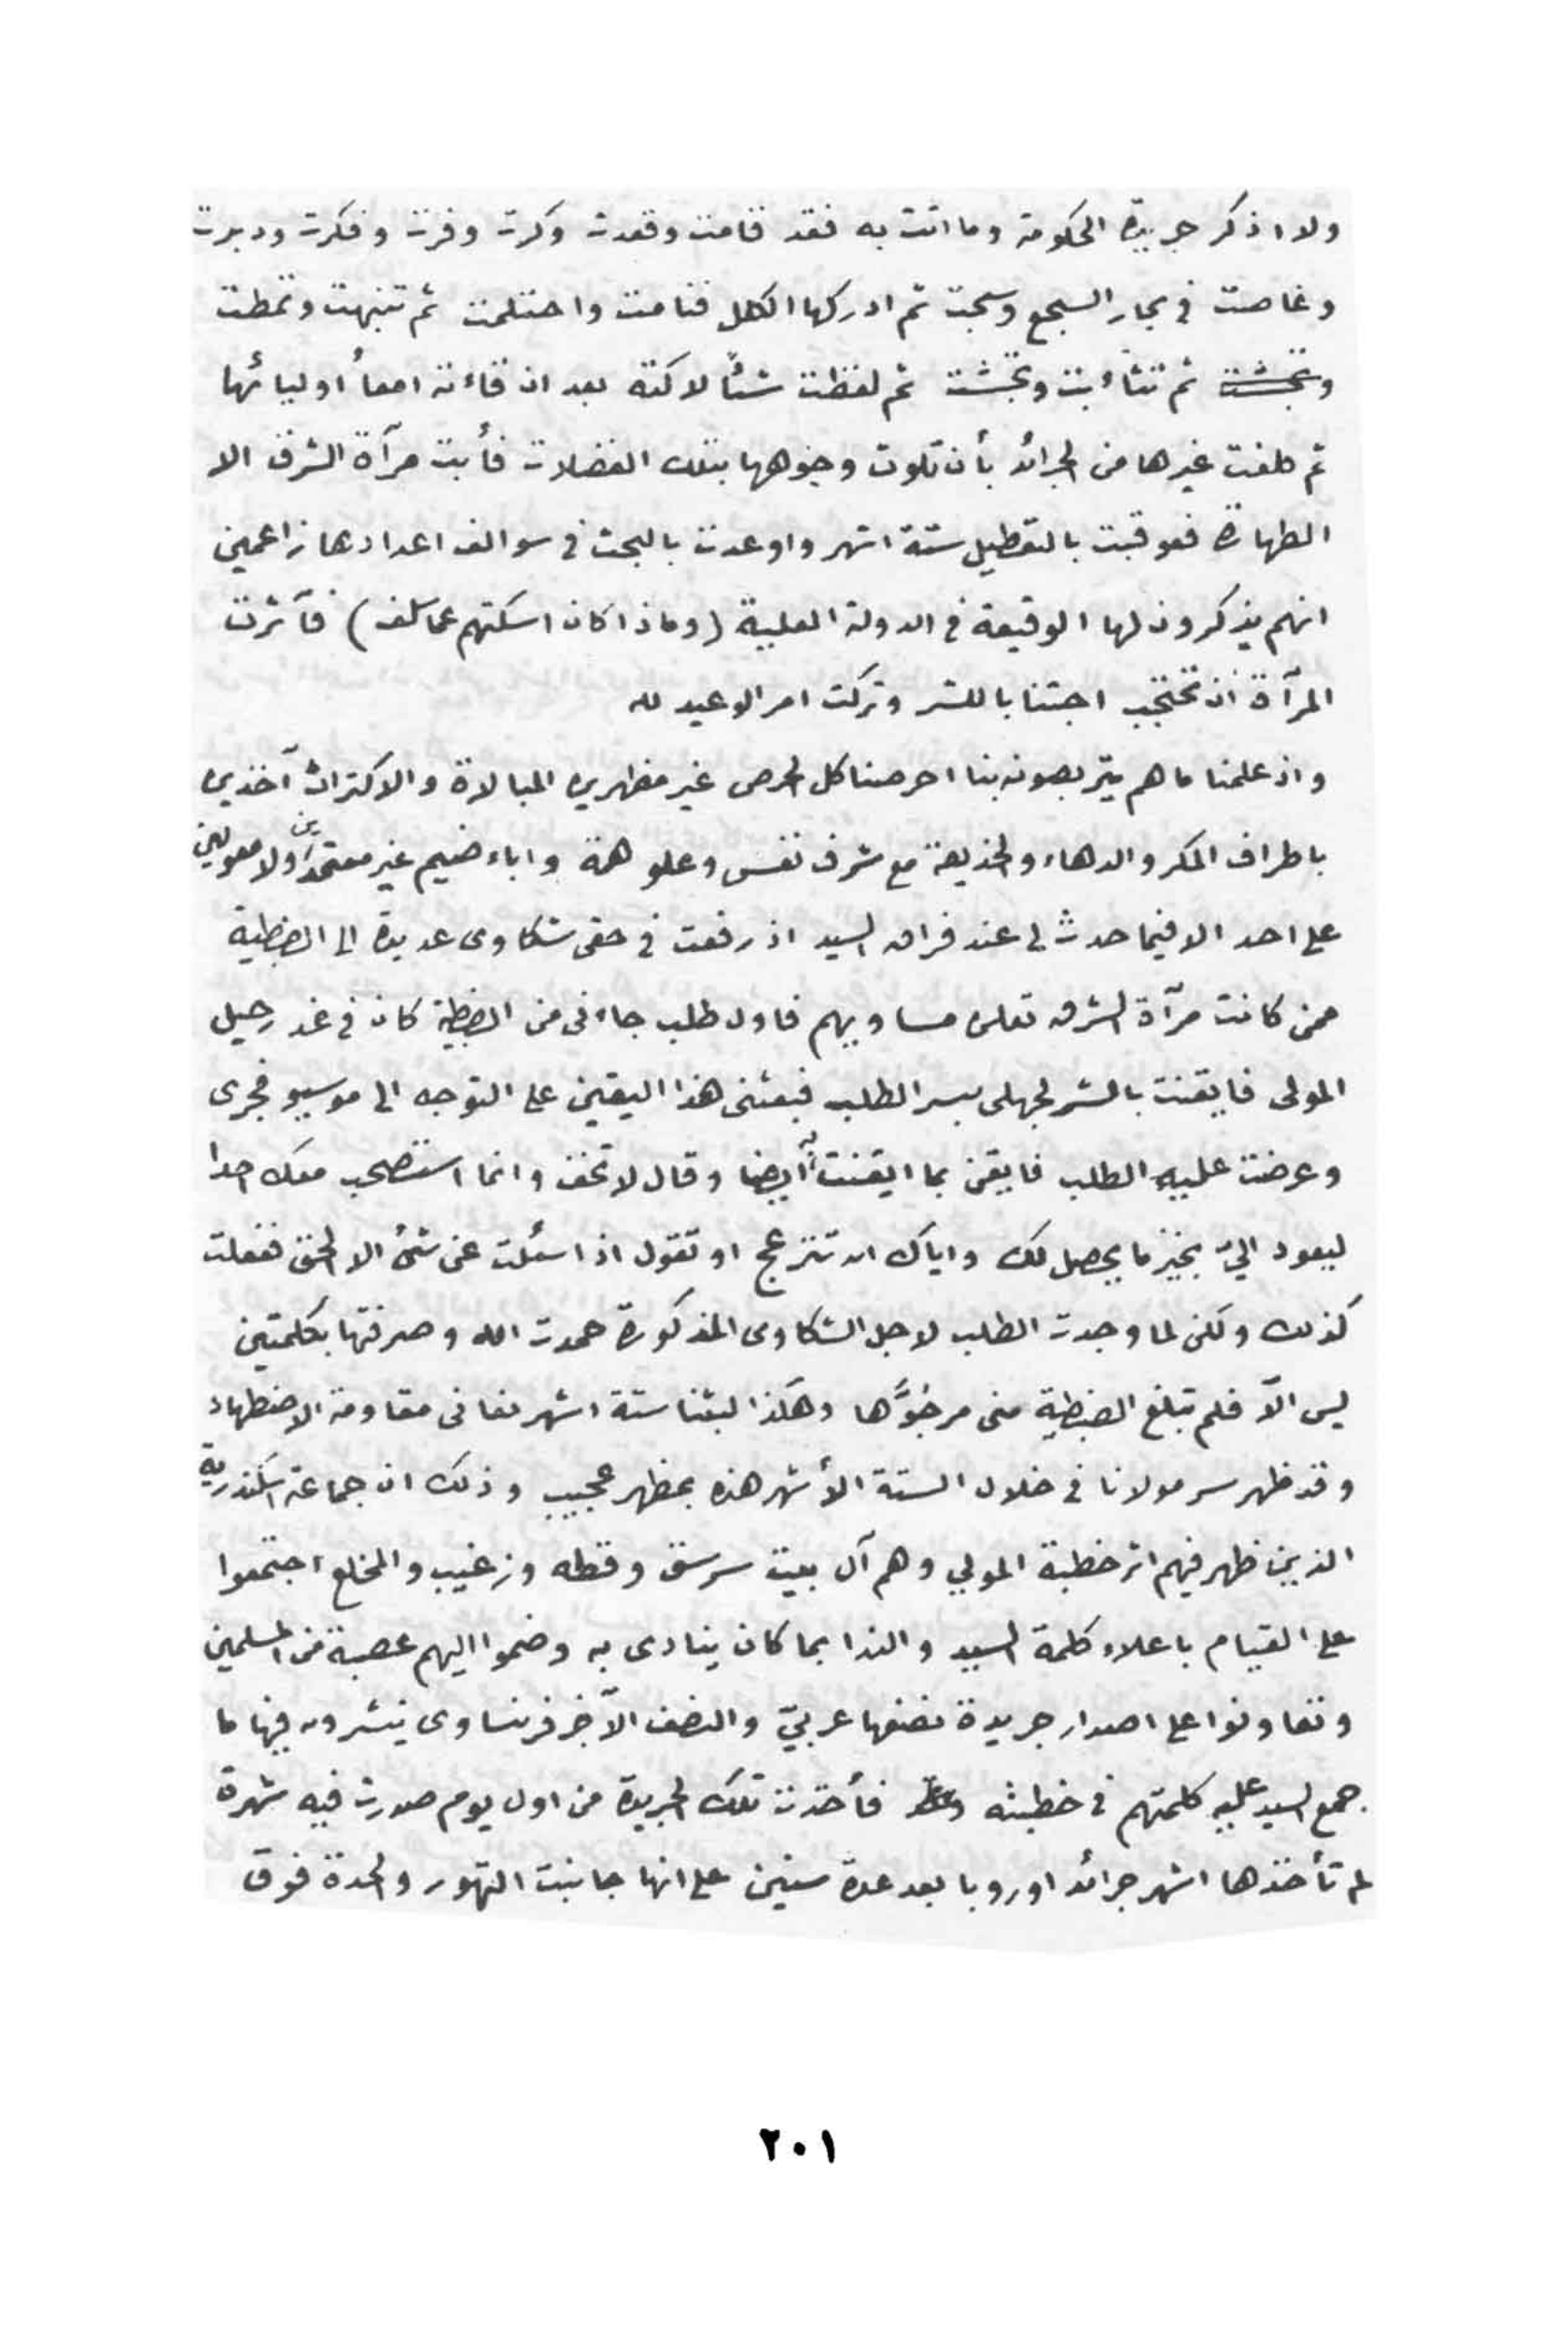 ولا اذكر جريدة الحكومة وما اتت به فقد قامت وقعدت وكرت وفرت وفكرت ودبرت
وغاصت في بحار السجع وسبحت ثم ادركها الكلل فنامت واحتلمت ثم تنبهت وتمطت
وتجشت ثم تثاءبت وتجشت ثم لفظت شئاً لاكته بعد ان قاءته امعاُ اوليائها
ثم كلفت غيرها من الجرائد بأن تلوث وجوهها بتلك الفضلات فأبت مرآة الشرق الا
الطهارة فعوقبت بالتعطيل ستة اشهر واوعدت بالبحث في سوالف اعدادها زاعمين
انهم يذكرون لها الوقيعة في الدولة العلية (وماذا كان اسكتهم عما سلف) فآثرت
المرآة ان تحتجب اجتنابا للشر وتركت امر الوعيد لله
واذ علمنا ما هم يتربصونه بنا احرصنا كل الحرص غير مظهرين المبالاة والاكتراث آخذين
باطراف المكر والدهاء والخديعة مع شرف نفس وعلو همة واباء ضيم غير معتمدين ولا معولين
على احد الا فيما حدث لى عند فراق السيد اذ رفعت في حقى شكاوى عديدة الى الضبطية
ممن كانت مرآة الشرق تعلن مساويهم فاول طلب جاءنى من الضبطية كان في غد رحيل
المولى فايقنت بالشر لجهلى بسر الطلب فبعثنى هذا اليقين على التوجه الى موسيو فجرى
وعرضت عليه الطلب فايقن بما ايقنت به ايضا وقال لا تخف وانما استصحب معك احدا
ليعود اليّ بخبر ما يحصل لك واياك ان تنزعج او تقول اذا سئلت عن شئ الا الحق ففعلت
كذلك ولكن لما وجدت الطلب لاجل الشكاوى المذكورة حمدت الله وصرفتها بكلمتين
ليس الّا فلم تبلغ الضبطية منى مرجُوَّها وهكذا لبثنا ستة اشهر نعانى مقاومة الاضطهاد
وقد ظهر سر مولانا في خلال الستة الأشهر هذه بمظهر عجيب وذلك ان جماعة اسكندرية
الذين ظهر فيهم اثر خطبة المولي وهم آل بيت سرسق وقطه وزغيب والمخلع اجتمعوا
على القيام باعلاء كلمة السيد والندا بما كان ينادى به وضموا اليهم عصبة من المسلمين
وتعاونوا على اصدار جريدة نصفها عربيّ والنصف الآخر فرنساوى ينشرون فيها ما
جمع السيد عليه كلمتهم في خطبته فأخذت تلك الجريدة من اول يوم صدرت فيه شهرة
لم تأخذها اشهر جرائد اوروبا بعد عدة سنين على انها جانبت التهور والحدة فوق
٢٠١